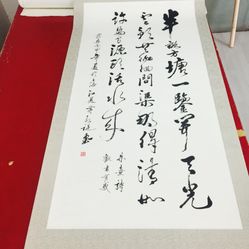 半畝方塘一鑒開天光
雲影共徘徊問渠那得清如
許為有源頭活水來
朱熹詩
觀書有感